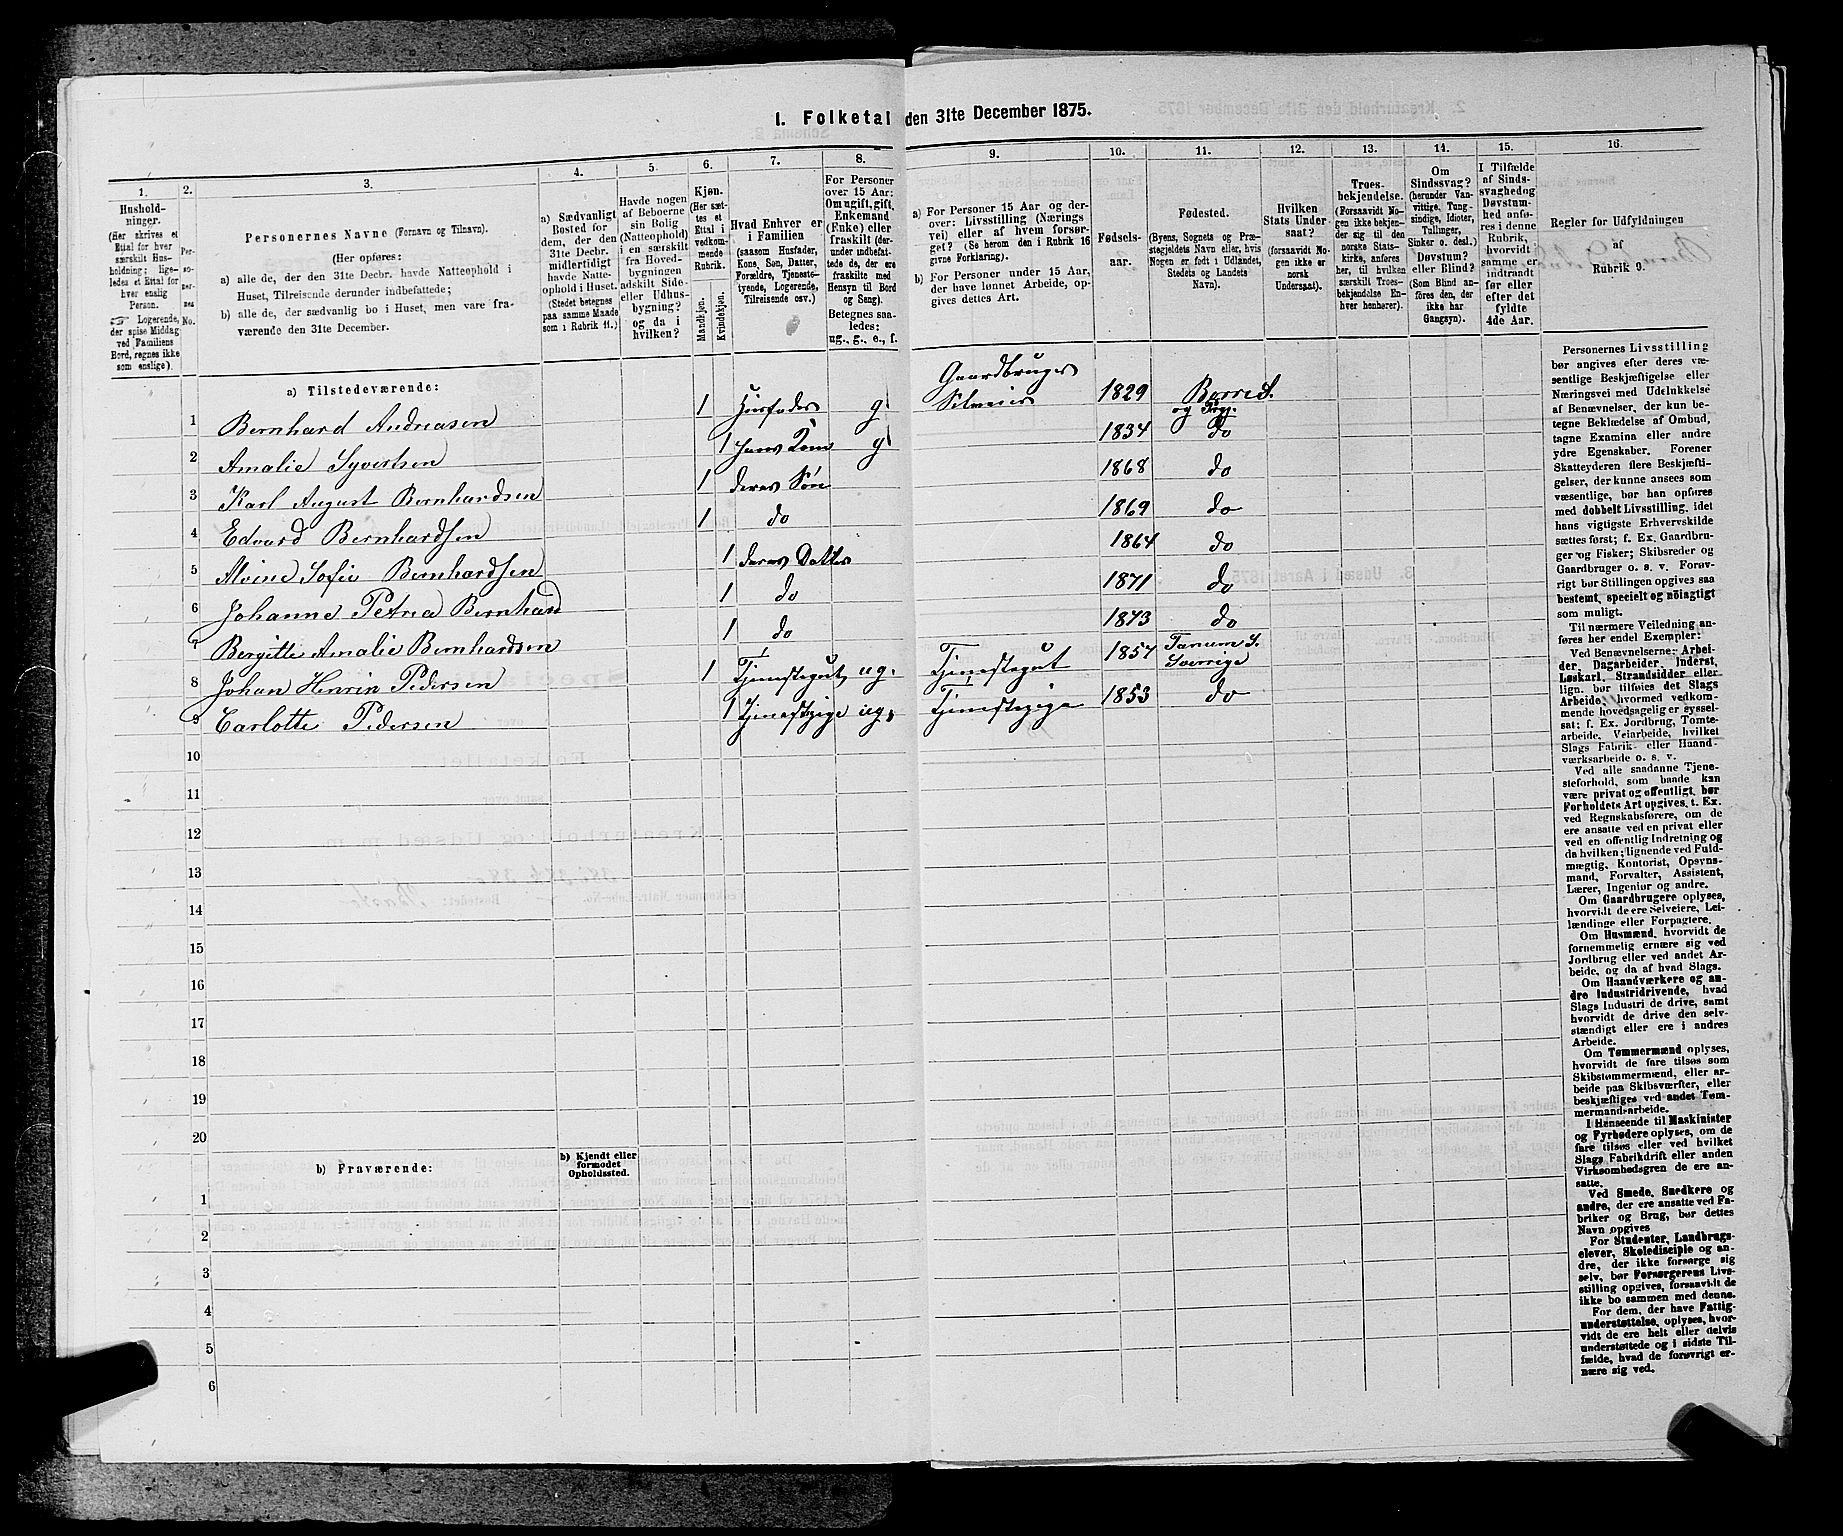 I. Folketal den 31te December 1875.
1. 2. 3. 4. 5. 6. 7. 8. 9. 10. 11. 12. 13. 14. 15. 16.
Hushold-
ninger.
(Her skrives et
Ettal for hver
særskilt Hus-
holdning; lige-
ledes et Ettal for
hver enslig
Person.
Logerende,
der spise Middag
ved Familiens
Bord, regnes ikke
som enslige).
Per-
so-
ner-
nes
No.
Personernes Navne (Fornavn og Tilnavn).
(Her opføres:
a) alle de, der den 31te Decbr. havde Natteophold i
Huset, Tilreisende derunder indbefattede;
b) alle de, der sædvanlig bo i Huset, men vare fra-
værende den 31te December.
a) Sædvanligt
Bosted for
dem, der den
31te Decbr.
midlertidigt
havde Natte-
ophold i Huset.
(Stedet betegnes
paa samme Maade
som i Rubrik 11.)
Havde nogen
af Beboerne
sin Bolig
(Natteophold)
i en særskilt
fra Hoved-
bygningen
adskilt Side-
eller Udhus-
bygning?
og da i
hvilken?
Kjøn.
(Her sæt-
tes et
Ettal i
vedkom-
mende
Rubrik.
Mandkjøn.
Kvindekjøn.
Hvad Enhver er
i Familien
(saasom Husfader,
Kone, Søn, Datter,
Forældre, Tjeneste-
tyende, Logerende,
Tilreisende osv.)
For Personer
over 15 Aar:
Om ugift, gift,
Enkemand
(Enke) eller
fraskilt (der-
under indbefat-
tede de, der ere
fraskilte med
Hensyn til Bord
og Seng).
Betegnes saa-
ledes:
ug., g., e., f.
a) For Personer 15 Aar og der-
over: Livsstilling (Nærings
vei) eller af hvem forsør-
get? (Se herom den i Rubrik 16
givne Forklaring).
b) For Personer under 15 Aar,
der have lønnet Arbeide, op-
gives dettes Art.
Fødsels-
aar.
Fødested.
(Byens, Sognets og Præ-
stegjeldets Navn eller, hvis
Nogen er født i Udlandet,
Stedets og Landets
Navn).
Hvilken
Stats Under-
saat?
(forsaavidt No-
gen ikke er
norsk
Undersaat).
Troes-
bekjendelse.
(Forsaavidt No-
gen ikke bekjen-
der sig til den
norske Stats-
kirke, anføres
her, til hvilken
særskilt Troes-
bekjendelse En-
hver henhører).
Om
Sindssvag?
(herunder Van-
vittige, Tung-
sindige, Idioter,
Tullinger,
Sinker o. desl.)
Døvstum?
eller Blind?
(Som Blind an-
føres den, der
ikke har
Gangsyn).
I Tilfælde
af Sinds-
svaghed og
Døvstum-
hed anfø-
res i denne
Rubrik,
hvorvidt
samme er
indtraadt
før eller
efter det
fyldte
4de Aar.
Regler for Udfyldningen
af
Rubrik 9.
a) Tilstedeværende:
1 Bernhard Andreasen 1 Husfader g. Gaardbruger Selveier 1829 Borred. og Prgj.
2 Amalie Syvertsen 1 hans Kone g 1834 do
3 Karl August Bernhardsen 1 deres Søn 1868 do
4 Edvard Bernhardsen 1 do 1869 do
5 Alvine Sofie Bernhardsen 1 deres Datter 1864 do
6 Johanne Petrea Bernhard 1 do 1871 do
7 Bergitte Amalie Bernhardsen 1 do 1873 do
8 Johan Henrin Pedersen 1 Tjenestegut ug. Tjenestegut 1857 Tanum S. Sverrige
9 Carlotte Pedersen 1 Tjenestpige ug. Tjenestpige 1853 do
10
11
12
13
14
15
16
17
18
19
20
b) Fraværende:
b) Kjendt eller
formodet
Opholdssted.
1
2
3
4
5
6
Personernes Livsstilling
bør angives efter deres væ-
sentlige Beskjæftigelse eller
Næringsvei med Udelukkelse
af Benævnelser, der kun be-
tegne Beklædelse af Ombud,
tagne Examina eller andre
ydre Egenskaber. Forener
Skatteyderen flere Beskjæfti-
gelser, der kunne ansees som
væsentlige, bør han opføres
med dobbelt Livsstilling, idet
hans vigtigste Erhvervskilde
sættes først; f. Ex. Gaardbru-
ger og Fisker; Skibsreder og
Gaardbruger o. s. v. Forøv-
rigt bør Stillingen opgives saa
bestemt, specielt og nöiagtigt
som muligt.
Til nærmere Veiledning an-
føres her endel Exempler:
Ved Benævnelserne: Arbei-
der, Dagarbeider, Inderst,
Løskarl, Strandsidder eller
lign. bør tilføies det Slags
Arbeide, hvormed vedkom-
mende hovedsagelig er syssel-
sat; f. Ex. Jordbrug, Tomte-
arbeide, Veiarbeide, hvilket
Slags Fabrik- eller Haand-
værksarbeide o. s. v.
Ved alle saadanne Tjene-
steforhold, som baade kan
være privat og offentligt, bør
Forholdets Art opgives, t. Ex.
ved Regnskabsførere, om de
ere ansatte ved en privat eller
ved en offentlig Indretning og
da hvilken; lignende ved Fuld-
mægtig, Kontorist, Opsyns-
mand, Forvalter, Assistent,
Lærer, Ingeniør og andre.
Om Gaardbrugere oplyses,
hvorvidt de ere Selveiere, Lei-
lændinge eller Forpagtere.
Om Husmænd, hvorvidt de
fornemmelig ernære sig ved
Jordbrug eller ved andet Ar-
beide, og da af hvad Slags.
Om Haandværkere og an-
dre Industridrivende, hvad
Slags Industri de drive, samt
hvorvidt de drive den selv-
stændigt eller ere i andres
Arbeide.
Om Tømmermænd oplyses,
hvorvidt de fare tilsøs som
Skibstømmermænd, eller ar-
beide paa Skibsværfter, eller
beskjæftiges ved andet Tøm-
mermandsarbeide.
I Henseende til Maskinister
og Fyrbødere oplyses, om de
fare tilsøs eller ved hvilket
Slags Fabrikdrift eller anden
Virksomhedsgren de ere an-
satte.
Ved Smede, Snedkere og
andre, der ere ansatte ved Fa-
briker og Brug, bør dettes
Navn opgives
For Studenter, Landbrugs-
elever, Skoledisciple og an-
dre, der ikke forsørge sig
selv, bør Forsørgerens Livs-
stilling opgives, forsaavidt de
ikke bo sammen med denne.
For dem, der have Fattig-
understøttelse, oplyses, hvor-
vidt de ere helt eller delvis
understøttede og i sidste Til-
fælde, hvad de forøvrigt er-
nære sig ved.